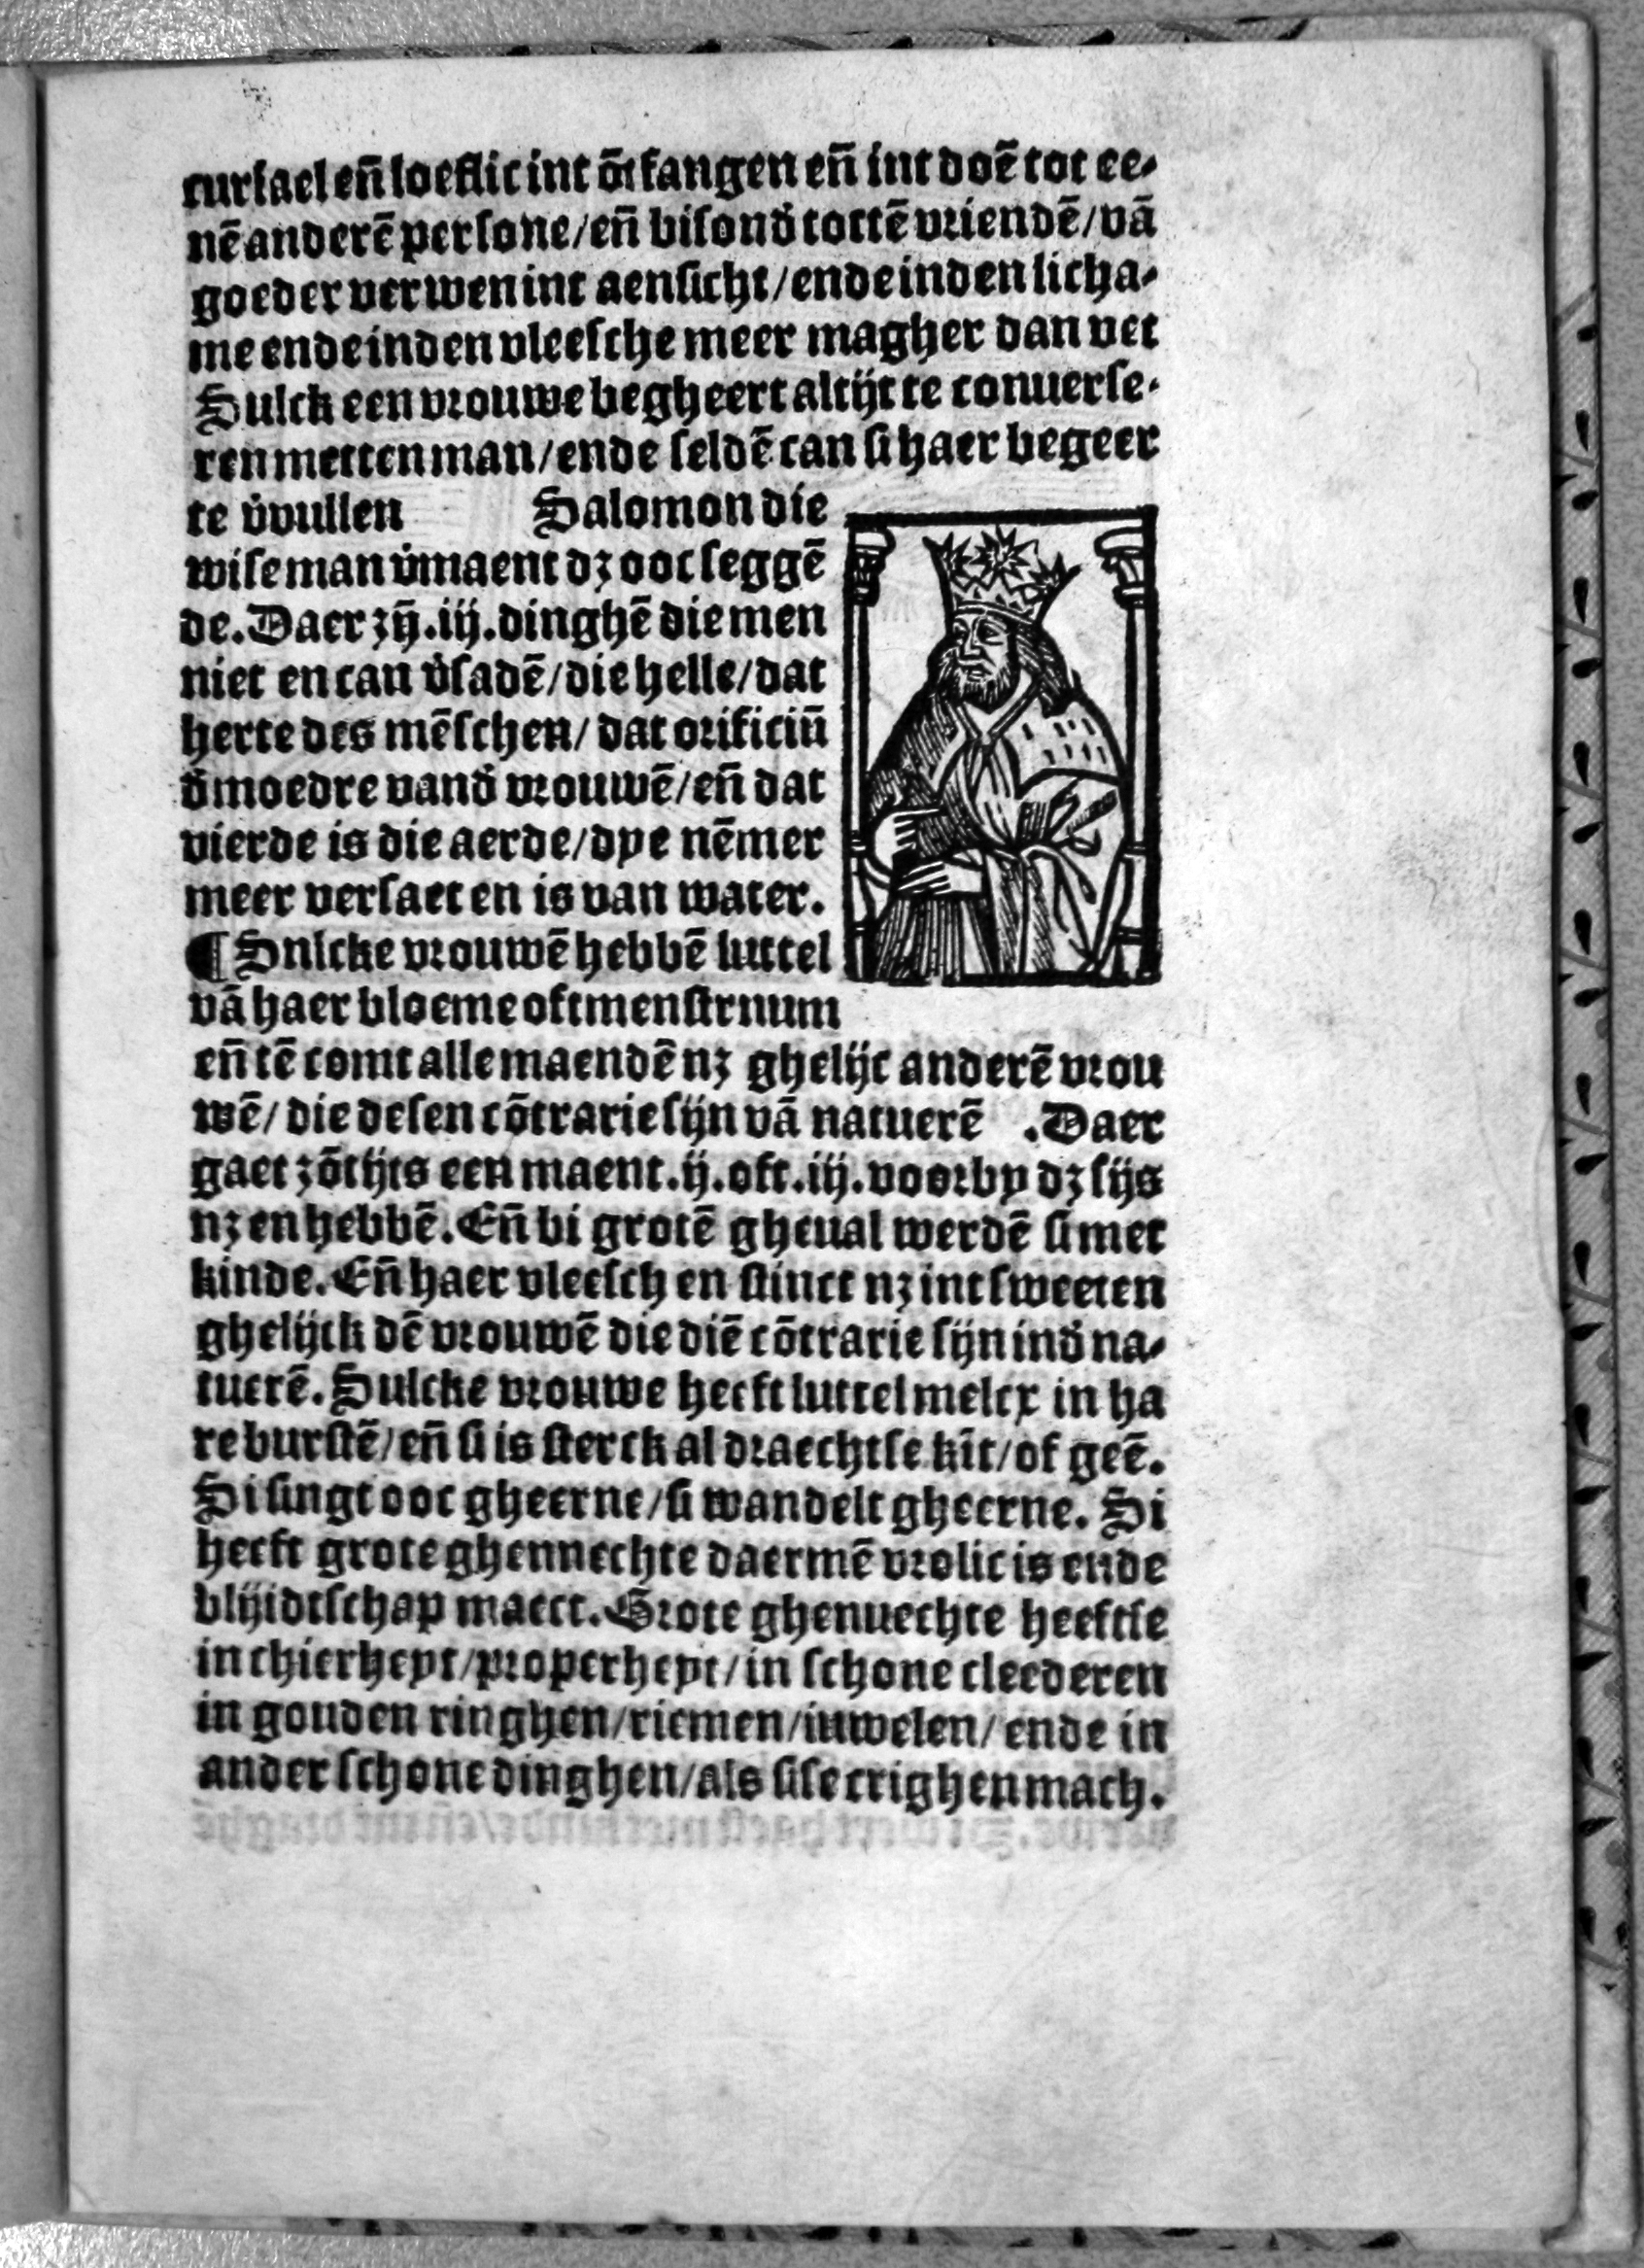 cursael en̄ loeflic int ōtfangen en̄ int doē tot ee⸗
nē anderē persone/en̄ bisond̓ tottē vriendē/vā
goeder verwen int aensicht/ende in den licha⸗
me ende in den vleesche meer magher dan vet
Sulck een vrouwe begheert altijt te conuerse⸗
ren metten man/ende seldē can si haer begeer
te v̓vullen Salomon die
wise man v̓maent dʒ ooc seggē
de. Daer zȳ .iij. dinghē die men
niet en can v̓sadē/die helle/dat
herte des mēschen/dat orificiū
d̓ moedre vand̓ vrouwē/en̄ dat
vierde is die aerde/dye nēmer
meer versaet en is van water.
¶ Snlcke vrouwē hebbē luttel
vā haer bloeme oft menstrnum
en̄ tē comt alle maendē nʒ ghelijc anderē vrou
wē/ die desen cōtrarie sijn vā natuerē .Daer
gaet zōtijts een maent .ij. oft .iij. voorby dʒ sijs
nʒ en hebbē. En̄ bi grotē gheual werdē si met
kinde. En̄ haer vleesch en stinct nʒ int sweeten
ghelijck dē vrouwē die diē cōtrarie sijn ind̓ na⸗
tuerē. Sulcke vrouwe heeft luttel melcx in ha
re burstē/en̄ si is sterck al draechtse kīt/of geē.
Si singt ooc gheerne/si wandelt gheerne. Si
heeft grote ghennechte daermē vrolic is ende
blijidtschap maect. Grote ghenuechte heeftse
in chierheyt/properheyt/in schone cleederen
in gouden ringhen/riemen/iuwelen/ ende in
ander schone dinghen/als sise crighen mach.